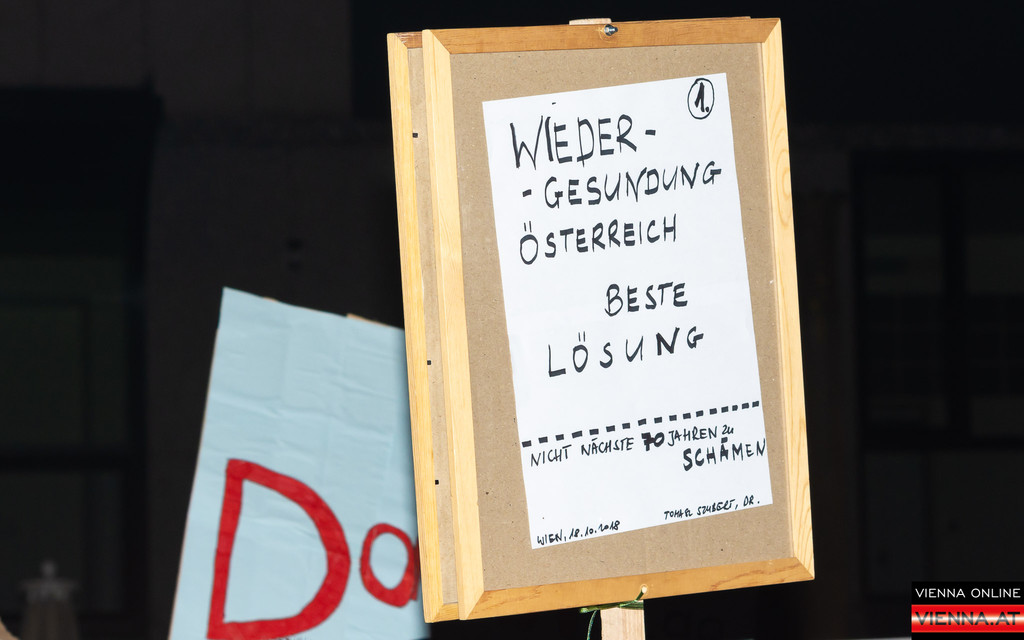 1.
WIEDER-
-GESUNDUNG
ÖSTERREICH
BESTE
LÖSUNG
NICHT NÄCHSTE 70 JAHREN zu
SCHÄMEN
WIEN, 18.10.2018
DR.
Da
VIENNA ONLINE
VIENNA.AT